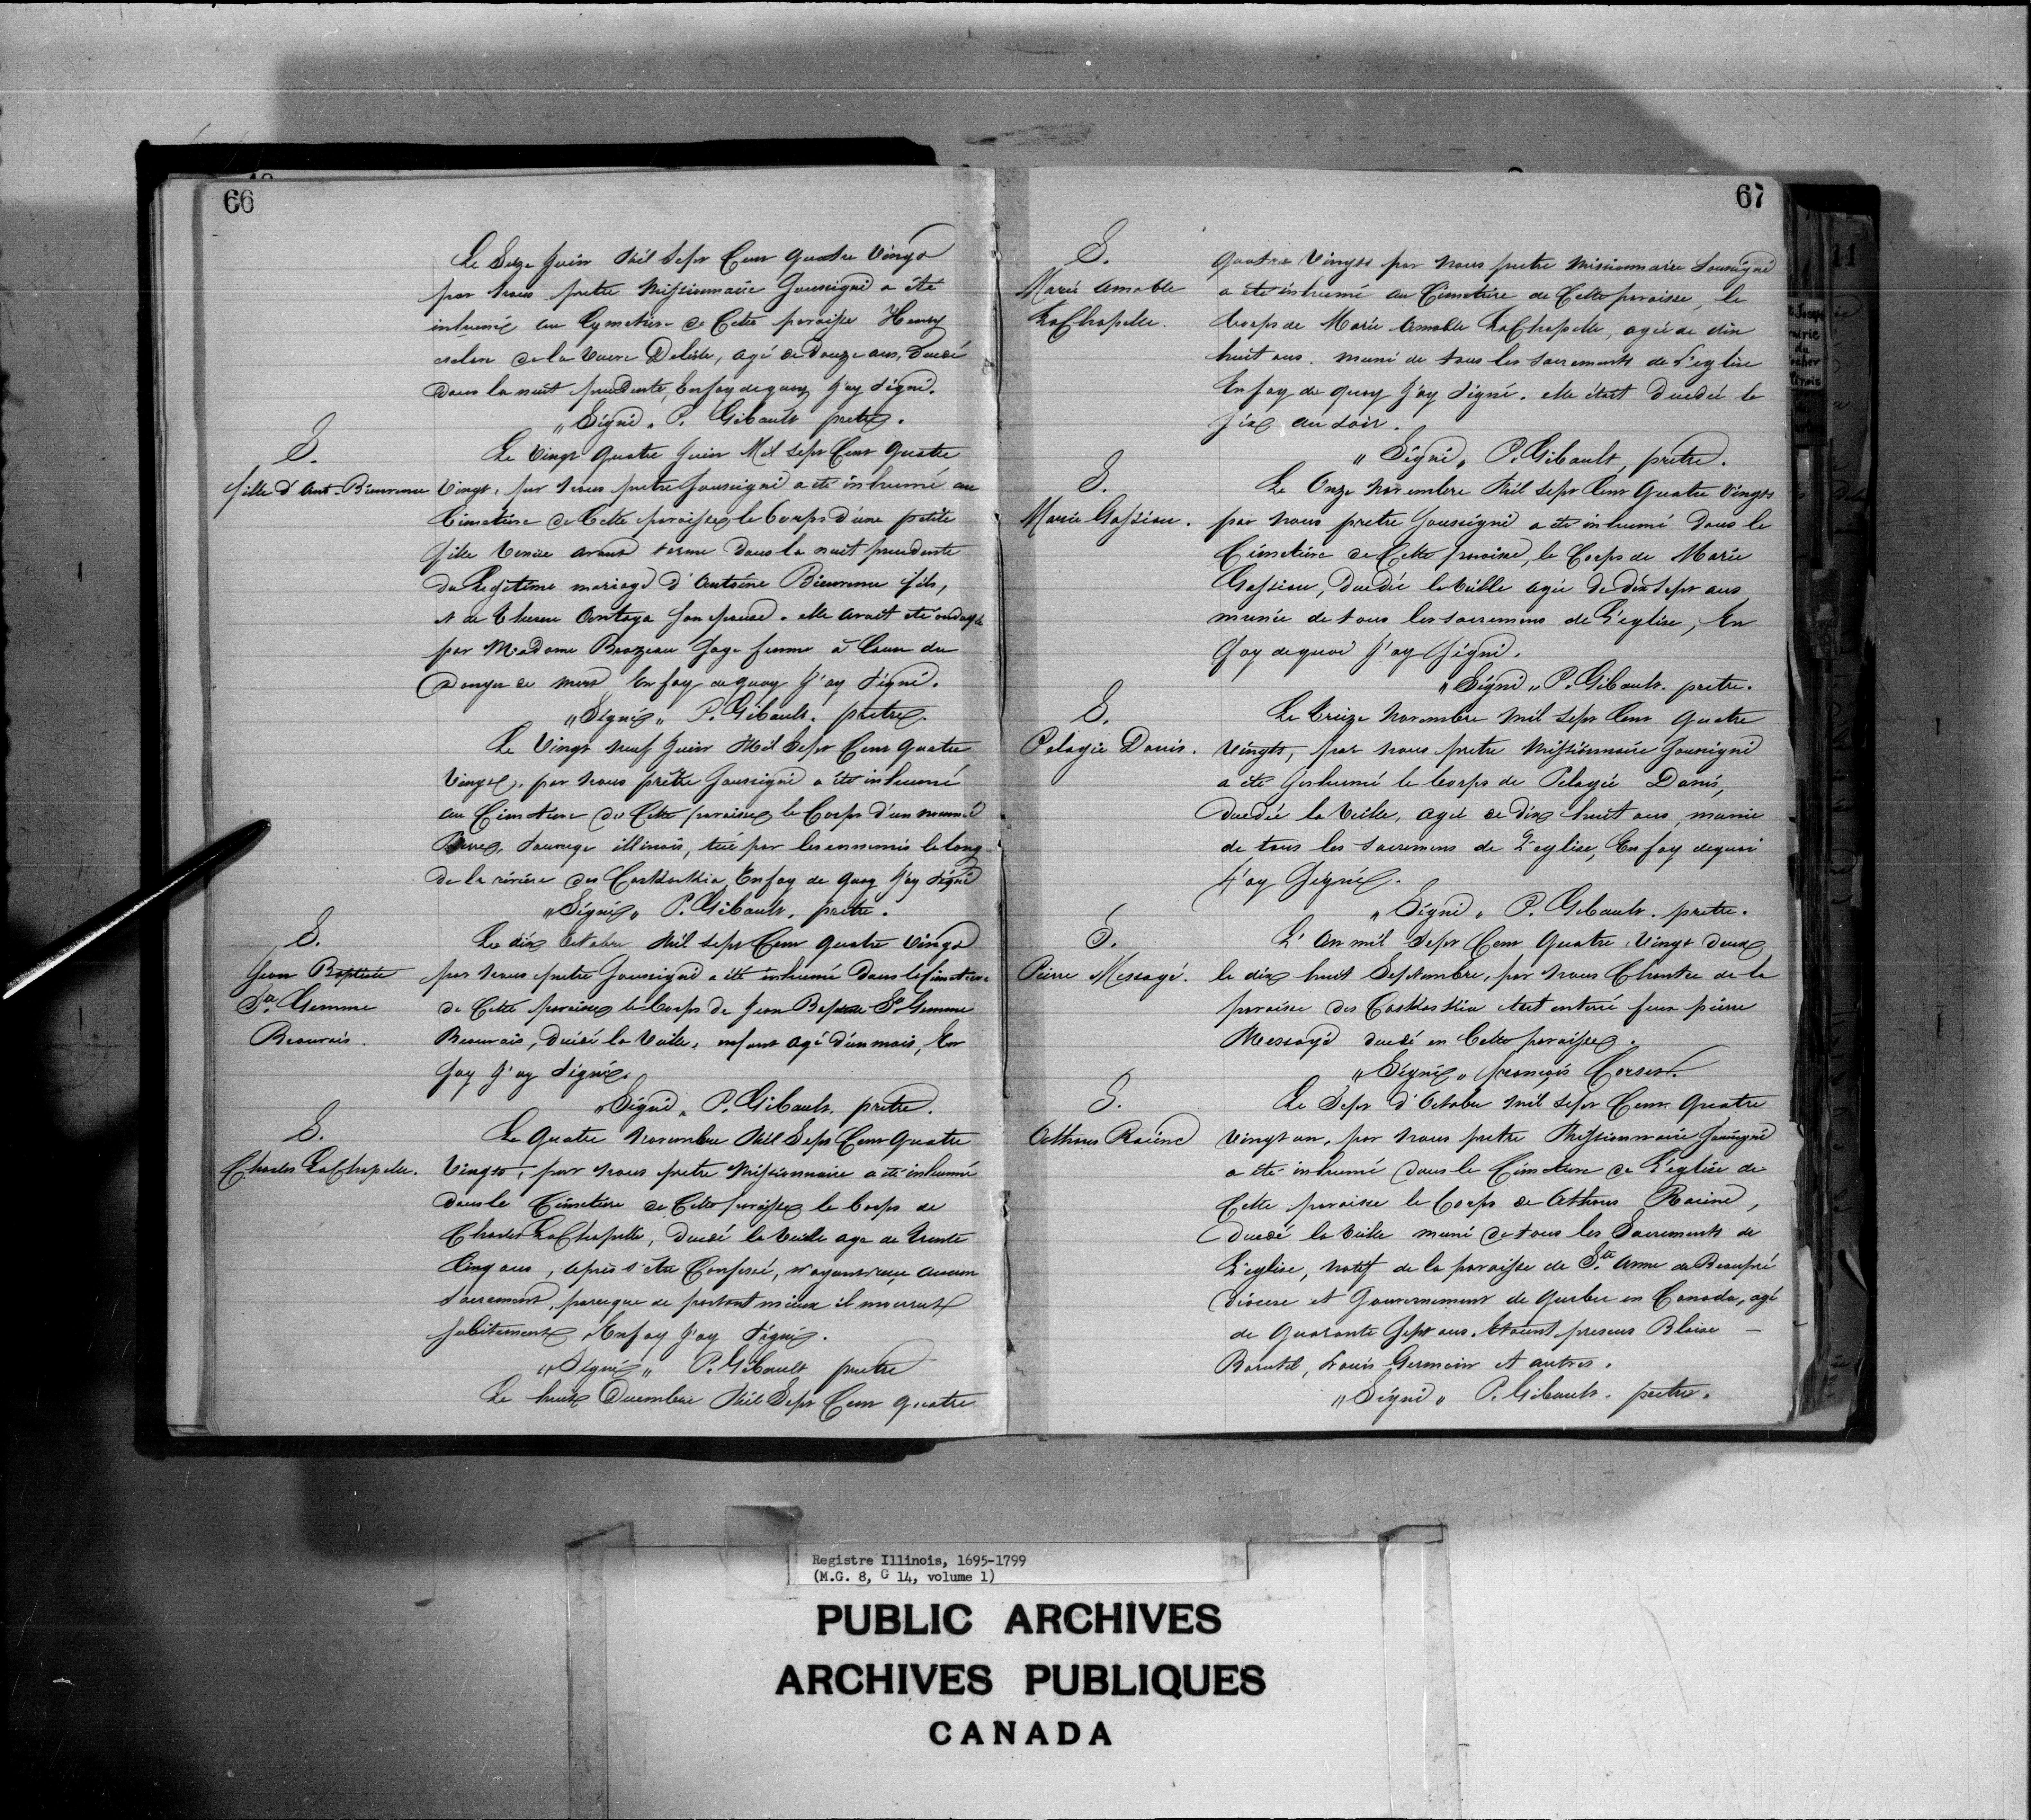 66
Le Seize Juin Mil Sept Cent quatre Vingt
par nous pretre Missionnaire Soussigné a été
inhumé au Cymetiere de Cette paroisse Henry
esclave de la veuve Deliste, agé de douze ans, décédé
dans la nuit precedente, En foy de quoy J'ay Signé.
"Signé" P. Gibault pretre.
S.
fille d'Ant. Bienvenu
Le Vingt Quatre Juin Mil Sept Cent Quatre
Vingt, par nous pretre Soussigné a été inhumé au
Cimetière de Cette paroisse le Corps d'une petite
fille venue avant terme dans la nuit precedente
du Legitime mariage d'Antoine Bienvenu fils,
et de Therese son epouse. elle avait été ondoyée
par Madame Sage femme à Cause du
danger de mort En foy de quoy J'ay Signé.
"Signé" P. Gibault. pretre.
Le Vingt neuf Juin Mil Sept Cent Quatre
Vingt, par nous prêtre Soussigné a été inhumé
au Cimetiere de Cette paroisse le Corps d'un nommé
Sauvage illinois, tué par les ennemis le long
de la rivière des Caskaskia, En foy de quoy J'ay Signé
"Signé" P. Gibault, pretre.
S.
Jean Baptiste
Ste. Gemme
Beauvais.
Le dix Octobre Mil Sept Cent quatre vingt
par nous pretre Soussigné a été inhumé dans le Cimetiere
de Cette paroisse le Corps de Jean Baptiste Ste Gemme
Beauvais, décédé la Veille, enfant agé d'un mois, En
foy J'ay Signé.
"Signé" P. Gibault. pretre.
S.
Charles LaChapelle.
Le Quatre Novembre Mil Sept Cent Quatre
Vingts, par nous pretre Missionnaire a été inhumé
dans le Cimetiere de Cette paroisse le Corps de
Charles LaChapelle, décédé la Veille age de trente
Cinq ans, après s'être Confessé, n'ayant reçu aucun
Sacrement, parceque se portant mieux il mourrut
subitement, En foy J'ay Signé.
"Signé" P. Gibault pretre
Le huit Decembre Mil Sept Cent quatre
67
S.
Marie Amable
LaChapelle.
quatre Vingts par nous pretre Missionnaire Soussigné
a été inhumé au Cimetiere de Cette paroisse, le
Corps de Marie Amable LaChapelle, agée de dix
huit ans. muni de tous les sacrements de L'eglise
En foy de quoy J'ay Signé. elle était decedée le
six au soir.
"Signé" P. Gibault, pretre.
S.
Marie Gassiau.
Le Onze Novembre Mil Sept Cent Quatre Vingts
par nous pretre Soussigné a été inhumé dans le
Cimetiere de Cette paroisse, le Corps de Marie
Gassiau, decedée la veille agée de dix sept ans
munie de tous les sacremens de L'eglise, En
foy de quoi J'ay Signé.
"Signé" P. Gibault. pretre.
S.
Pelagie Danis.
Le treize Novembre Mil Sept Cent Quatre
Vingts, par nous pretre Missionnaire Soussigné
a été Inhumé le Corps de Pelagie Danis,
decedée la Veille, agée de dix huit ans, munie
de tous les sacremens de L'eglise, En foy de quoi
J'ay Signé.
"Signé" P. Gibault. pretre.
S.
Pierre Messagé.
L'an mil Sept Cent Quatre Vingt deux
le dix huit Septembre, par nous Chantre de la
paroisse des Caskaskia etait enterré feux pierre
Messagé decedé en Cette paroisse.
"Signé" françois Corset.
S.
Athanas Racine
Le Sept d'Octobre mil Sept Cent Quatre
vingt un, par nous pretre Missionnaire Soussigné
a été inhumé dans le Cimetiere de L'église de
Cette paroisse le Corps de Athanas Racine,
decedé la veille muni de tous les Sacrements de
L'eglise, natif de la paroisse de Ste. Anne de Beaupré
diocese et Gouvernement de Quebec en Canada, agé
de Quarante Sept ans. Etaient presens Blaise —
Barutel, Louis Germain et autres.
"Signé" P. Gibault. pretre.
Registre Illinois, 1695-1799
(M.G. 8, G 14, volume 1)
PUBLIC ARCHIVES
ARCHIVES PUBLIQUES
CANADA